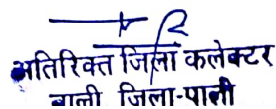 अतिरिक्त जिला कलेक्टर
बाली जिला-पाली